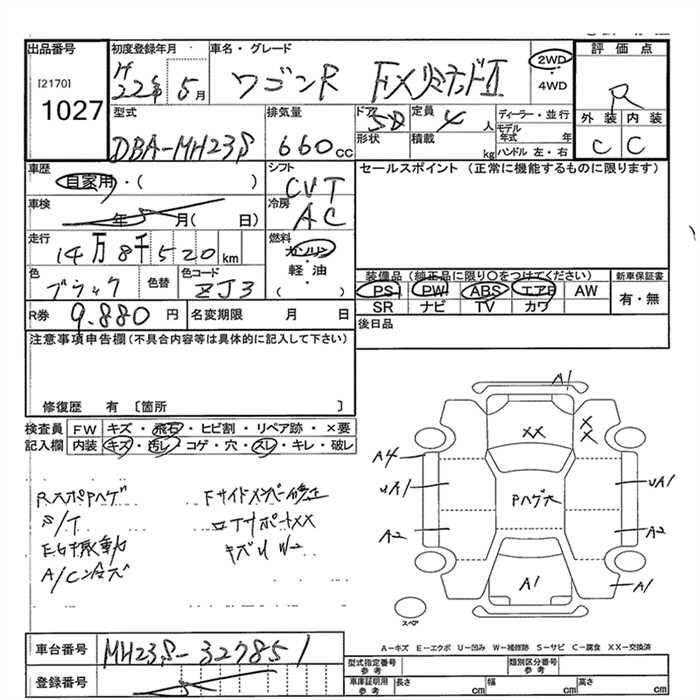 出品番号 初度登録年月 車名・グレード 評価点
[2170] H 22年 5月 ワゴンR FXリミテッドII 2WD・4WD R
1027
型式 排気量 ドア 定員 ディーラー・並行 外装 内装
DBA-MH23S 660cc 5D 4人 モデル年式 年 C C
形状 積載 kg ハンドル 左・右
車歴 シフト セールスポイント(正常に機能するものに限ります)
自家用・( ) CVT
車検 冷房
年 月( 日) AC
走行 燃料
14万8千520km ガソリン・軽油
色 色替 色コード ( )
ブラック ZJ3
装備品(純正品に限り○をつけてください) 新車保証書
PS PW ABS エアB AW 有・無
SR ナビ TV カワ
R券 9.880円 名変期限 月 日 後日品
注意事項申告欄(不具合内容等は具体的に記入して下さい)
修復歴 有 〔箇所 〕
検査員 FW キズ・飛石・ヒビ割・リペア跡・×要
記入欄 内装 キズ・汚レ・コゲ・穴・スレ・キレ・破レ
RスポPハゲ Fサイドメンバー修正
S/T ロアサポートXX
キズU W2
A/C
A1
XX
X X
A4
UA1 Pハゲ大 UA1
A2 A2
A1 A1
スペア
A-キズ E-エクボ U-凹み W-補修跡 S-サビ C-腐食 XX-交換済
車台番号 MH23S-327851
登録番号
型式指定番号 参考 類別区分番号 参考
車庫証明用 参考 長さ cm 幅 cm 高さ cm